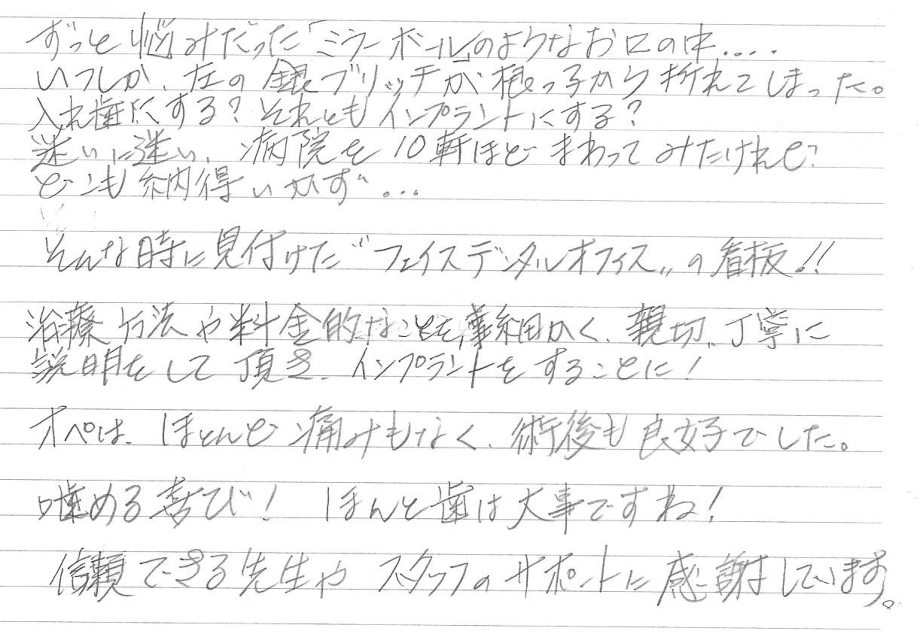 ずっと悩みだった「ミラーボール」のようなお口の中....
いつしか、左の銀ブリッチが根っ子から折れてしまった。
入れ歯にする？それともインプラントにする？
迷いに迷い、病院を10軒ほどまわってみたけれど
どこも納得いかず...
そんな時に見付けた“フェイスデンタルオフィス„の看板!!
治療方法や料金的なことを事細かく、親切、丁寧に
説明をして頂き、インプラントをすることに！
オペは、ほとんど痛みもなく、術後も良好でした。
噛める喜び！ ほんと歯は大事ですね！
信頼できる先生や スタッフのサポートに感謝しています。